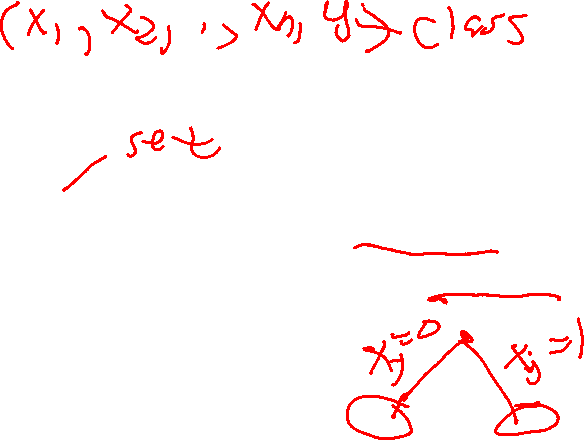 (x₁, x₂, .., xₙ, y) → class
set
xⱼ=0 xⱼ=1